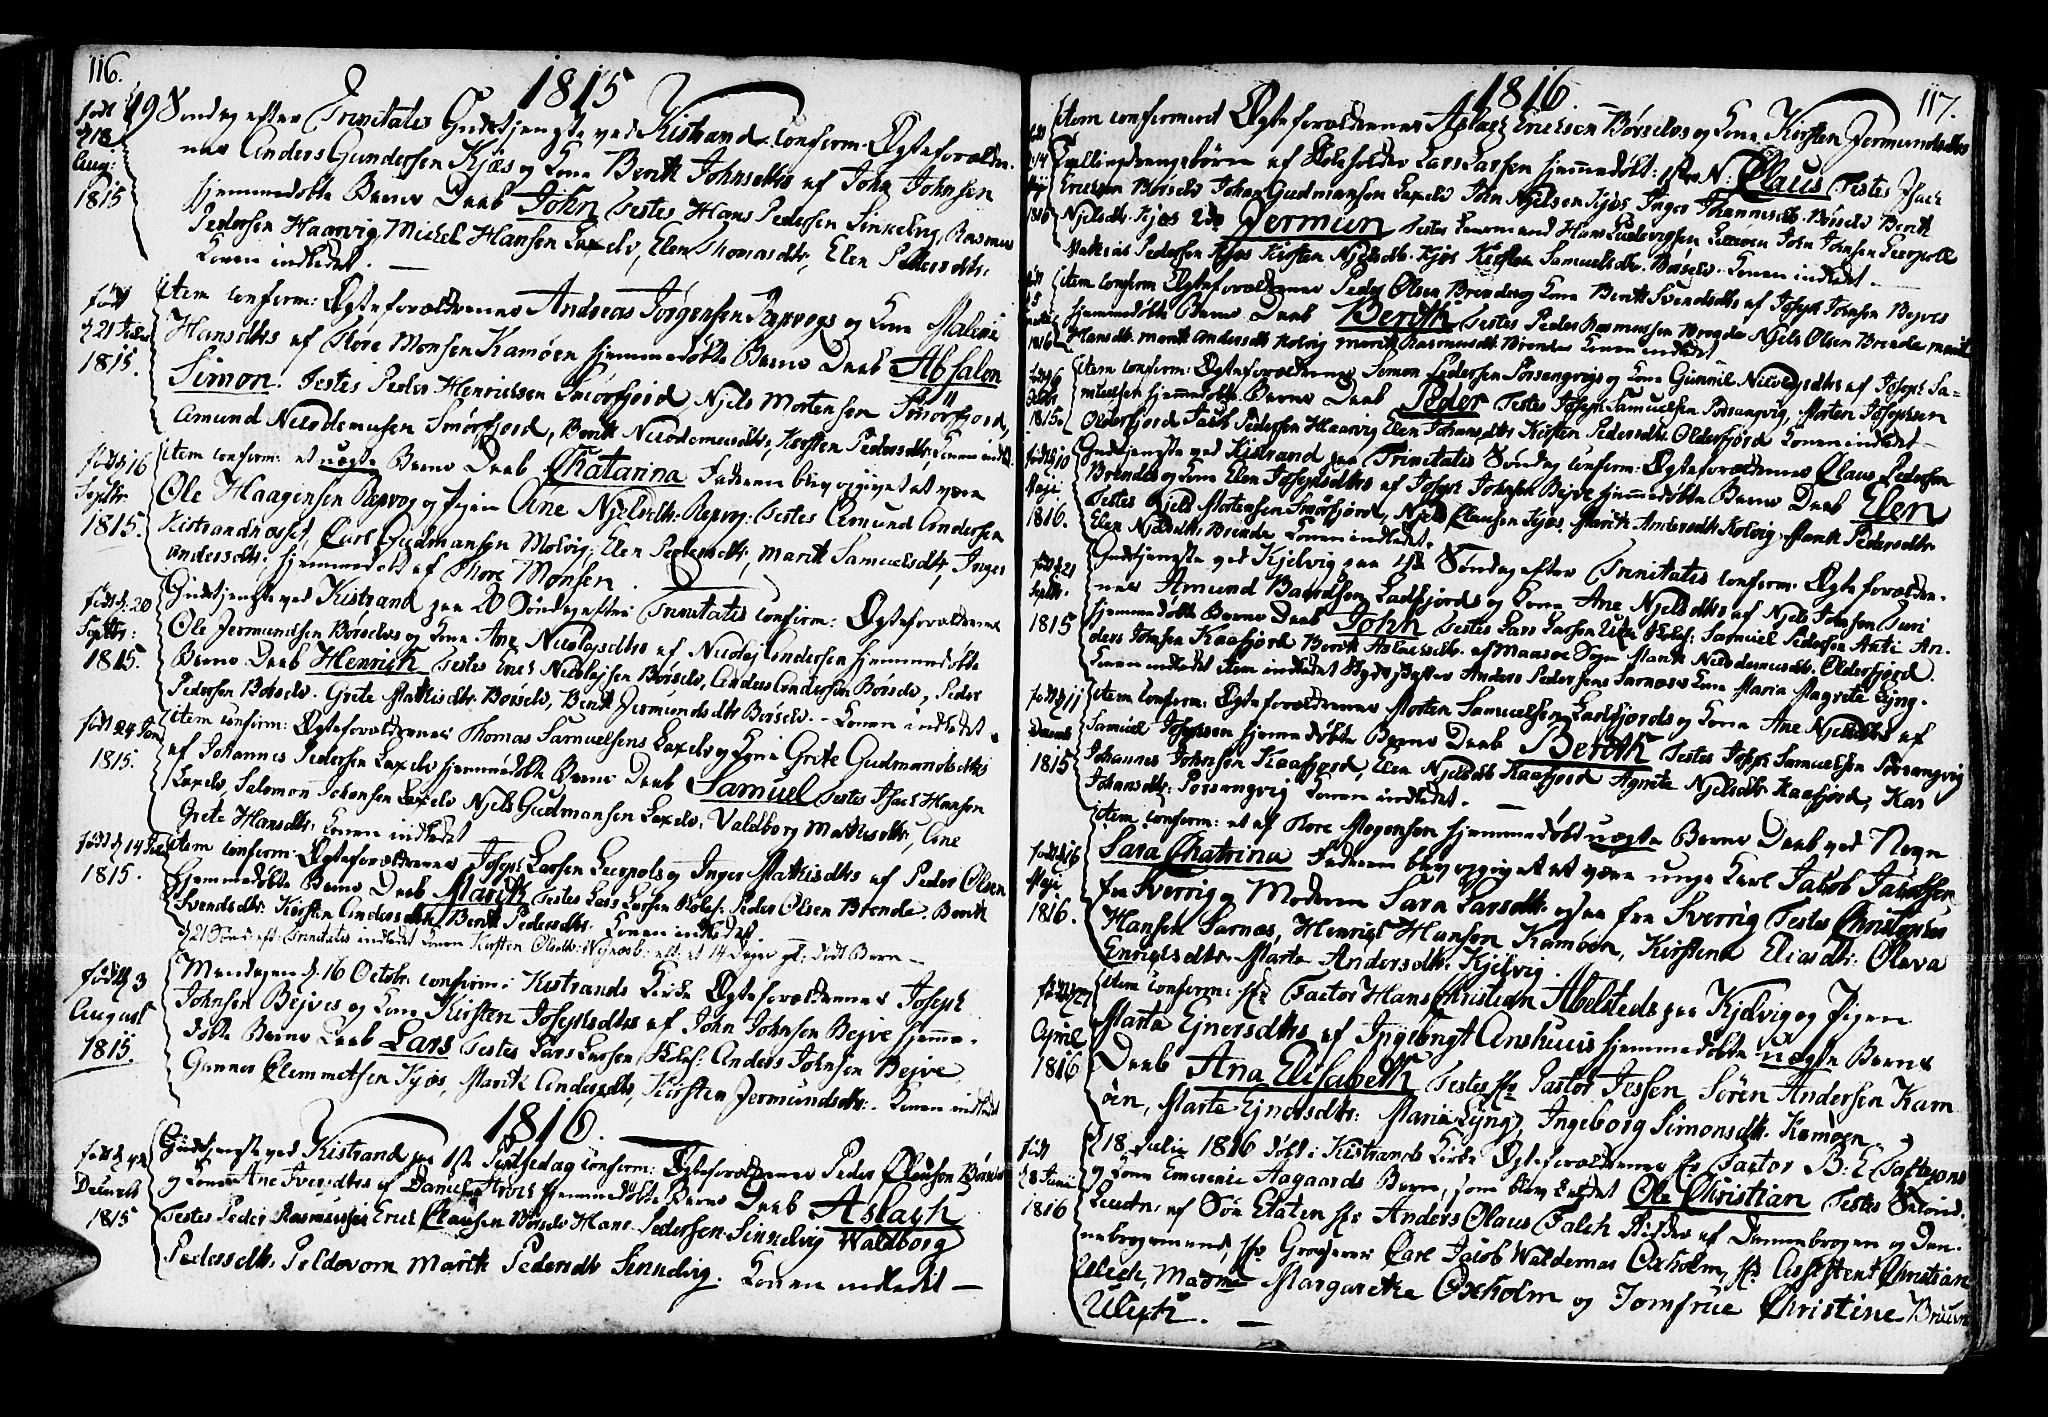 116.
1815
født d 18 Aug: 1815
19 Søndag efter Trinitatis Gudstjeneste ved Kistrand Conferm. Ægteforældre-
nes Anders Gundersen Kjæs og Kone Berith Johnsdtrs af John Johnsen
hjemmedøbte Barns Daab John Testes Hans Pedersen Sinkelvig, Rasmus
Pedersen Haarvig, Michel Hansen Laxelv, Elen Thomasdtr, Elen Pedersdtr,
Konen indledet. —
født d 21 1815.
item conferm: Ægteforældrenes Andreas Jørgensen Repvogs og Kone Malene
Hansdtrs af Thore Monsen Kamøen hjemmedøbte Barns Daab Absalon
Simon. Testes Peder Henricsen Smørfjord, Njels Mortensen Smörfjord,
Amund Nicodemusen Smørfjord, Berith Nicodemusdtr, Kirsten Pedersdtr, Konen indl.
født d 16 Septbr 1815.
item conferm: et uægte Barns Daab Chatarina Faderen blev opgivet at være
Ole Haagensen Repvog og Pigen Ane Njelsdtr: Repvog: Testes Amund Andersen
Kistrandnæsset, Carl Gudmansen Molvig, Elen Pedersdtr, Marith Samuelsdtr, Inger
Andersdtr: hjemmedøbt af Thore Monsen.
født d. 20 Septbr: 1815.
Gudstjeneste ved Kistrand paa 20 Søndag efter Trinitatis conferm: Ægteforældrenes
Ole Jermundsen Børselvs og Kone Ane Nicolajsdtrs af Nicolaj Andersen hjemmedøbte
Barns Daab Henrich Testes Erich Nicolajsen Børselv, Anders Andersen Børselv, Peder
Pedersen Børselv. Grete Mathisdtr Børselv, Berith Jermundsdtr Børselv. - Konen indledet.
født 24 Jan 1815.
item conferm: Ægteforældrenes Thomas Samuelsens Laxelv og Kone Grete Gudmandsdtrs
af Johannes Pedersen Laxelv hjemmedøbte Barns Daab Samuel Testes Isach Hansen
Laxelv, Salomon Johansen Laxelv Njels Gudmansen Laxelv, Valdborg Mathisdtr, Ane
Grete Hansdtr. Konen indledet
født d 14 1815.
item conferm: Ægteforældrenes Joseph Larsen Leerpols og Inger Mathisdtrs af Peder Olsen
hjemmedøbte Barns Daab Marith Testes Lars Larsen Peder Olsen Brende. Berith
Svendsdtr. Kirsten Andersdtr Berith Pedersdtr. Konen indledet
d 21 Sønd: eft: Trinitatis indledet Konen Kirsten Olsdtr: et 14 Dage gl: dødt Barn —
født d 3 August 1815.
Mandagen d. 16 Octobr. conferm. i Kistrands Kirke Ægteforældrenes Joseph
Johnsen Bejves og Kone Kirsten Josephsdtrs af John Johnsen Bejve hjemme-
døbte Barns Daab Lars Testes Lars Larsen Anders Johnsen Bejve
Gunner Clemmetsen Kjæs, Marith Andersdtr, Kirsten Jermundsdtr. Konen indledet
1816.
født d Decembr 1815
Gudstjeneste ved Kistrand paa 1ste Pintsedag conferm: Ægteforældrenes Peder Clausen Børselv
og Kone Ane Svendsdtrs af Daniel hjemmedøbte Barns Daab Aslach
Testes Peder Rasmussen Erich Clausen Børselv Hans Pedersen Sinnelvig Waldborg
Pedersdtr. Peldovom Marith Pedersdtr Sinnelvig. Konen indledet —
1816. 117.
født d 14 Maji 1816
item confermeret Ægteforældrenes Aslach Ericksen Børselvs og Kone Kirsten Jermundsdtrs
Tvillingdrengebørn af Skoleholder Lars Larsen hjemmedøbt: N: Claus Testes Isach
Ericksen Børselv Johan Gudmansen Laxelv John Njelsen Kjæs Inger Johannesdtr. Børselv Berith
Njelsdtr. Kjæs 2de Jermun Testes Hans Ludevigsen John Johnsen Leerpoll
Mathias Pedersen Kjæs Kirsten Njelsdtr. Kjæs Kirsten Samuelsdtr. Børselv. Konen indledet. —
født 5 1816
item conferm Ægteforældrenes Peder Olsen Brendes og Kone Berith Svendsdtrs af Joseph Johnsen Bejves
hjemmedøbte Barns Daab Berith Testes Peder Rasmussen Njels Olsen Brende Marith
Hansdtr. Marith Andersdtr Kolvig Marith Rasmusdtr. Brendes Konen indledet
født d 6 1815.
item conferm: Ægteforældrenes Simon Pedersen Porsangvigs og Kone Gunnil Nicolajsdtrs af Joseph Sa-
muelsen hjemmedøbte Barns Daab Peder Testes Joseph Samuelsen Porsangvig, Morten Josephsen
Olderfjord Jacob Pedersen Haarvig Elen Johansdtr Kirsten Pedersdtr. Olderfjord Konen indledet
født d 10 Maji 1816.
Gudstjeneste ved Kistrand paa Trinitatis Søndag conferm: Ægteforældrenes Claus Pedersen
Brendes og Kone Elen Josephsdtrs af Joseph Johnsen Bejve hjemmedøbte Barns Daab Elen
Testes Njels Mortensen Smørfjord, Njels Clausen Kjæs, Marith Andersdtr Kolvig, Marith Pedersdtr.
Elen Njelsdtr. Brende Konen indledet.
født d 21 Septbr. 1815
Gudstjeneste ved Kjelvig paa 1ste Søndag efter Trinitatis conferm. Ægteforældre-
nes Amund Baardsen Ladsfjords og Kone Ane Njelsdtrs af Njels Johnsen
hjemmedøbte Barns Daab John Testes Lars Larsen Samuel Pedersen Anti An-
ders Johnsen Kaafjord Berith Aslacsdtr. af Maasøe Sogn Marith Nicodemusdtr. Olderfjord.
Konen indledet item indledet Anders Pedersens Sarnæs Kone Maria Magrete Lyng.
født d 11 Decemb 1815
item conferm: Ægteforældrenes Morten Samuelsen Ladsfjords og Kone Ane Njelsdtrs af
Samuel Josephsen hjemmedøbte Barns Daab Berith Testes Joseph Samuelsen Porsangvig
Johannes Johnsen Kaafjord, Elen Njelsdtr Kaafjord Agnete Njelsdtr. Kaafjord, Kar
Johansdtr: Porsangvig Konen indledet. —
født d 16 Maji 1816.
item conferm: et af Thore Mogensen hjemmedøbt uægte Barns Daab ved Navn
Sara Chatrina Faderen blev opgivet at være unge Karl Jacob Jacobsen
fra Sverrig og Moderen Sara Larsdtr. ogsaa fra Sverrig Testes Christopher
Hansen Sarnæs, Henrich Hansen Kamøen, Kirstena Eliasdtr. Olava
Enrichsdtr. Marte Andersdtr. Kjelvig.
født d 27 April 1816
item conferm: Hr Factor Hans Christian Abelsteds paa Kjelvig og Pigen
Marta Ejnersdtrs af Ingebrigt Anshuus hjemmedøbte uægte Barns
Daab Ana Elisabeth Testes Hr Pastor Jessen Sören Andersen Kam
öen, Marte Ejnersdtr: Maria Lyng, Ingeborg Simonsdtr. Kamøen.
født d 8 Juni 1816
d 18 Julii 1816 døbt i Kistrands Kirke Ægteforældrenes Hr Factor B: E
og Kone Emerense Aagaards Barn, som blev kaldet Ole Christian Testes
Leutn: af Søe Etaten Hr Anders Olaus Falch Ridder af Dannebrogen og Dan-
nebrogsmand, Hr Grosserer Carl Jacob Waldemar Oxholm, Hr Assistent Christian
Ulich, Madme Margarethe Oxholm og Jomfrue Christine Bruun
Ulich. —